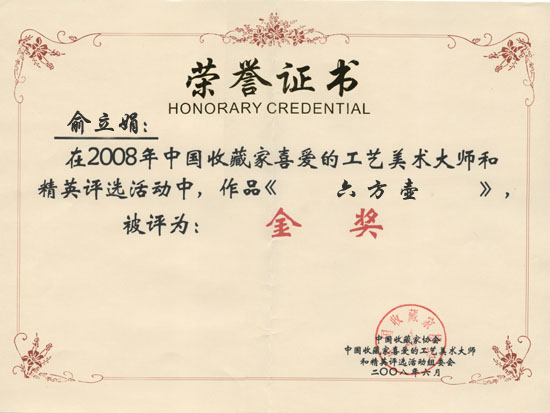 荣誉证书
HONORARY CREDENTIAL
俞立娟：
在2008年中国收藏家喜爱的工艺美术大师和
精英评选活动中，作品《 六方壶 》，
被评为： 金 奖
中国收藏家协会
中国收藏家喜爱的工艺美术大师
和精英评选活动组委会
二〇〇八年六月